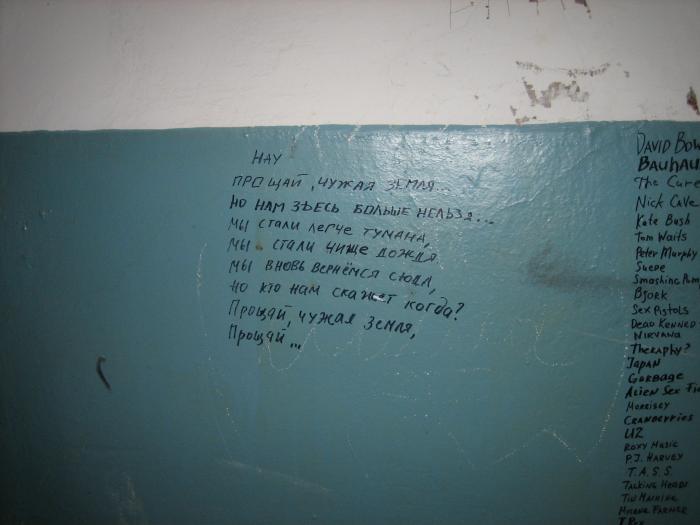 НАУ
ПРОЩАЙ, ЧУЖАЯ ЗЕМЛЯ...
НО НАМ ЗДЕСЬ БОЛЬШЕ НЕЛЬЗЯ...
МЫ СТАЛИ ЛЕГЧЕ ТУМАНА,
МЫ СТАЛИ ЧИЩЕ ДОЖДЯ
МЫ ВНОВЬ ВЕРНЁМСЯ СЮДА,
НО КТО НАМ СКАЖЕТ КОГДА?
Прощай, чужая земля,
Прощай...
DAVID BOW
BAUHAU
The Cure
Nick Cave
Kate Bush
Tom Waits
Peter Murphy
Suede
Smashing Pump
Bjork
Sex Pistols
Dead Kenned
NIRVANA
Theraphy?
Japan
GARBAGE
Alien Sex Fi
Morrisey
CRANBERRIES
U2
ROXY MUSIC
P.J. HARVEY
T.A.S.S.
TALKING HEADS
TIN MACHINE
MYLENE FARMER